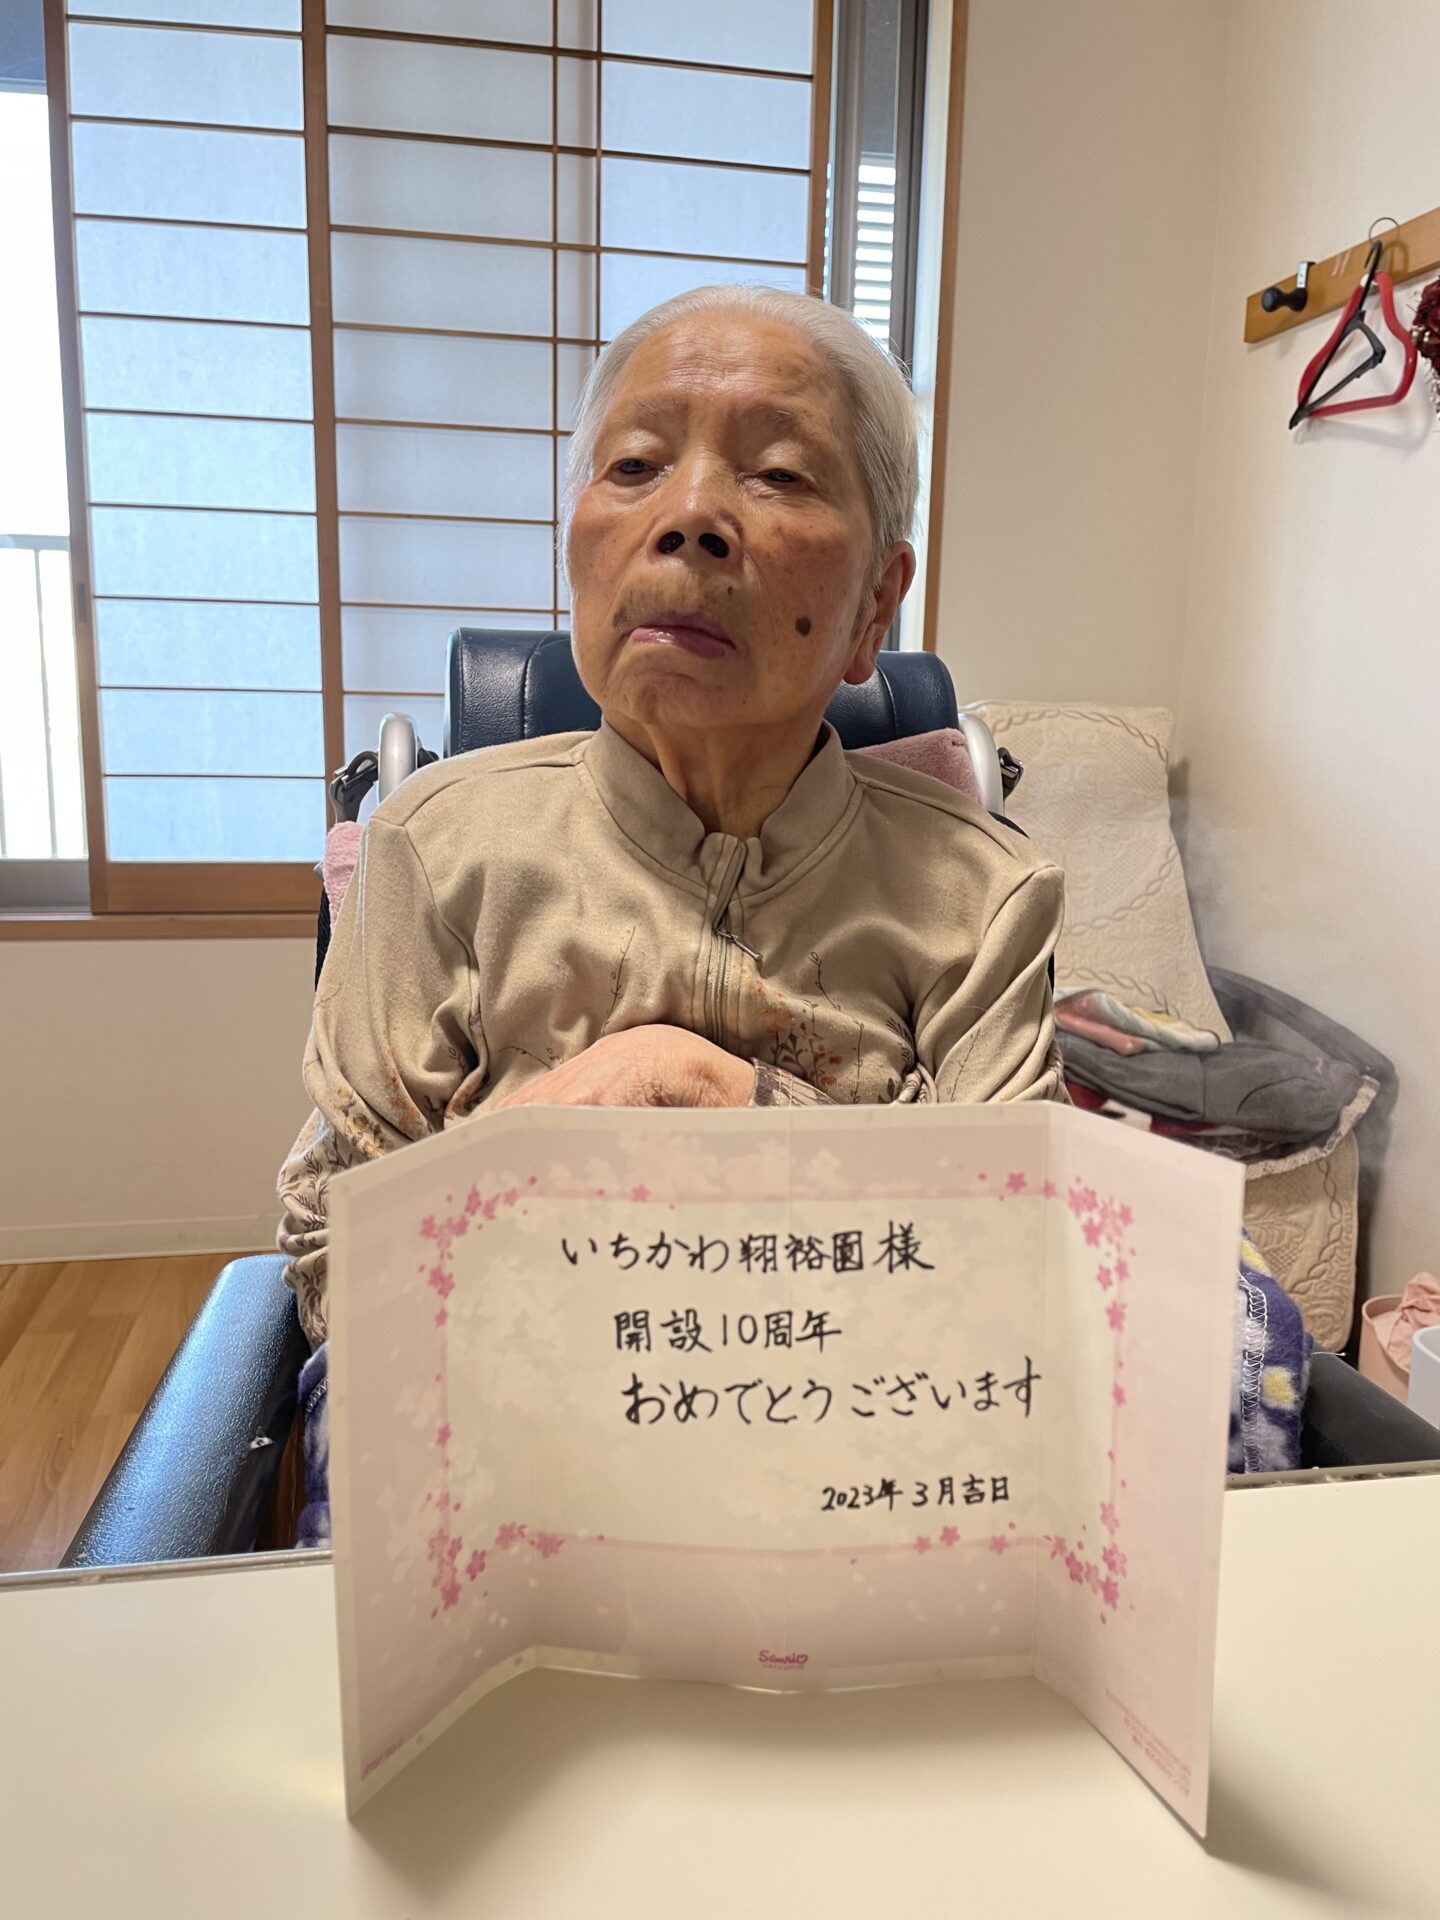 いちかわ翔裕園様
開設10周年
おめでとうございます
2023年3月吉日
Sanrio